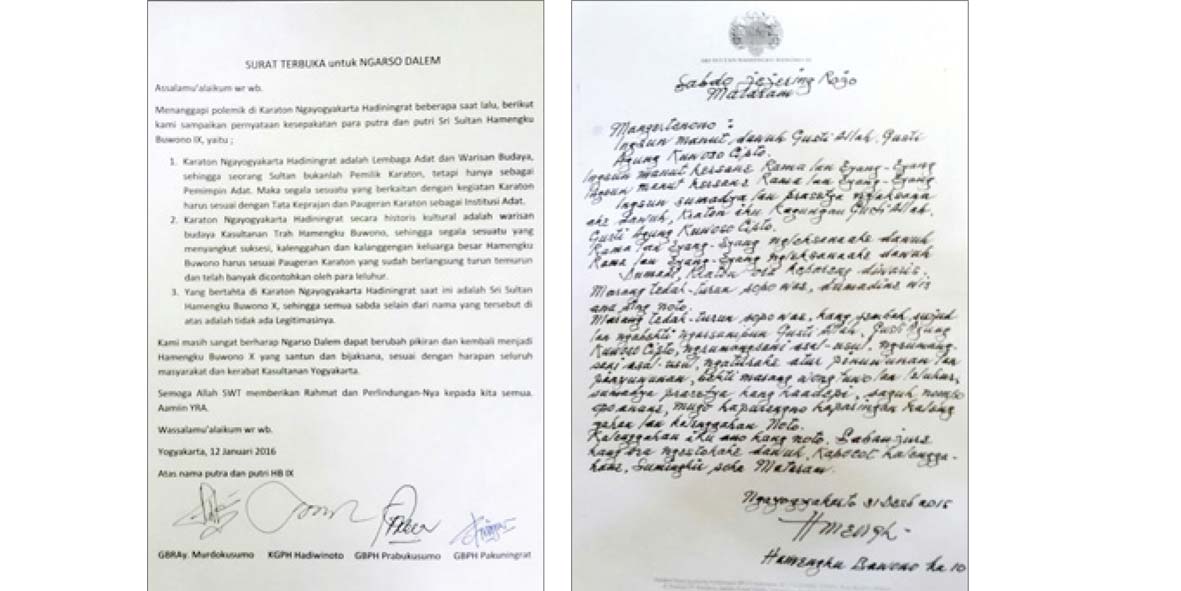 SURAT TERBUKA untuk NGARSO DALEM
Assalamu'alaikum wr wb.
Menanggapi polemik di Karaton Ngayogyakarta Hadiningrat beberapa saat lalu, berikut
kami sampaikan pernyataan kesepakatan para putra dan putri Sri Sultan Hamengku
Buwono IX, yaitu ;
1. Karaton Ngayogyakarta Hadiningrat adalah Lembaga Adat dan Warisan Budaya,
sehingga seorang Sultan bukanlah Pemilik Karaton, tetapi hanya sebagai
Pemimpin Adat. Maka segala sesuatu yang berkaitan dengan kegiatan Karaton
harus sesuai dengan Tata Keprajan dan Paugeran Karaton sebagai Institusi Adat.
2. Karaton Ngayogyakarta Hadiningrat secara historis kultural adalah warisan
budaya Kasultanan Trah Hamengku Buwono, sehingga segala sesuatu yang
menyangkut suksesi, kalenggahan dan kalanggengan keluarga besar Hamengku
Buwono harus sesuai Paugeran Karaton yang sudah berlangsung turun temurun
dan telah banyak dicontohkan oleh para leluhur.
3. Yang bertahta di Karaton Ngayogyakarta Hadiningrat saat ini adalah Sri Sultan
Hamengku Buwono X, sehingga semua sabda selain dari nama yang tersebut di
atas adalah tidak ada Legitimasinya.
Kami masih sangat berharap Ngarso Dalem dapat berubah pikiran dan kembali menjadi
Hamengku Buwono X yang santun dan bijaksana, sesuai dengan harapan seluruh
masyarakat dan kerabat Kasultanan Yogyakarta.
Semoga Allah SWT memberikan Rahmat dan Perlindungan-Nya kepada kita semua.
Aamiin YRA.
Wassalamu'alaikum wr wb.
Yogyakarta, 12 Januari 2016
Atas nama putra dan putri HB IX
GBRAy. Murdokusumo KGPH Hadiwinoto GBPH Prabukusumo GBPH Pakuningrat
Sabdo Jejering Rojo
Mataram
Mangertenono :
Ingsun manut dawuh Gusti Allah, Gusti
Agung Kuwoso Cipto.
Ingsun manut kersane Rama lan Eyang-Eyang
Ingsun manut kersane Rama lan Eyang-Eyang
Ingsun sumadya lan prasetya ngleksana
ake dawuh, Kraton iku Kagungan Gusti Allah.
Gusti Agung Kuwoso Cipto.
Rama lan Eyang-Eyang ngleksanaake dawuh
Rama lan Eyang-Eyang ngleksanaake dawuh
Dumadi, Kraton ora kepareng diwaris.
Marang tedak-turun sopo wae, dumadine wis
ana sing noto.
Marang tedak-turun sopo wae, kang sembah sujud
lan ngabekti ngarsanipun Gusti Allah, Gusti Agung
Kuwoso Cipto, ngrumangsani asal-usul, ngrumang-
sani asal-usul, ngaturake atur panuwunan lan
panyuwunan, bekti marang wong tuwo lan leluhur,
sumadya prasetya kang kaadepi, saguh nompo
opo anane, mugo kaparengno kaparingan kaleng
gahan lan kalenggahan Noto.
Kalenggahan iku ono kang noto. Sabanjure
kang ora ngestokake dawuh, kapocot kalengga-
hane, Sumingkir soko Mataram.
Ngayogyakarta 31 Desb 2015
Hamengku Bawono ka 10